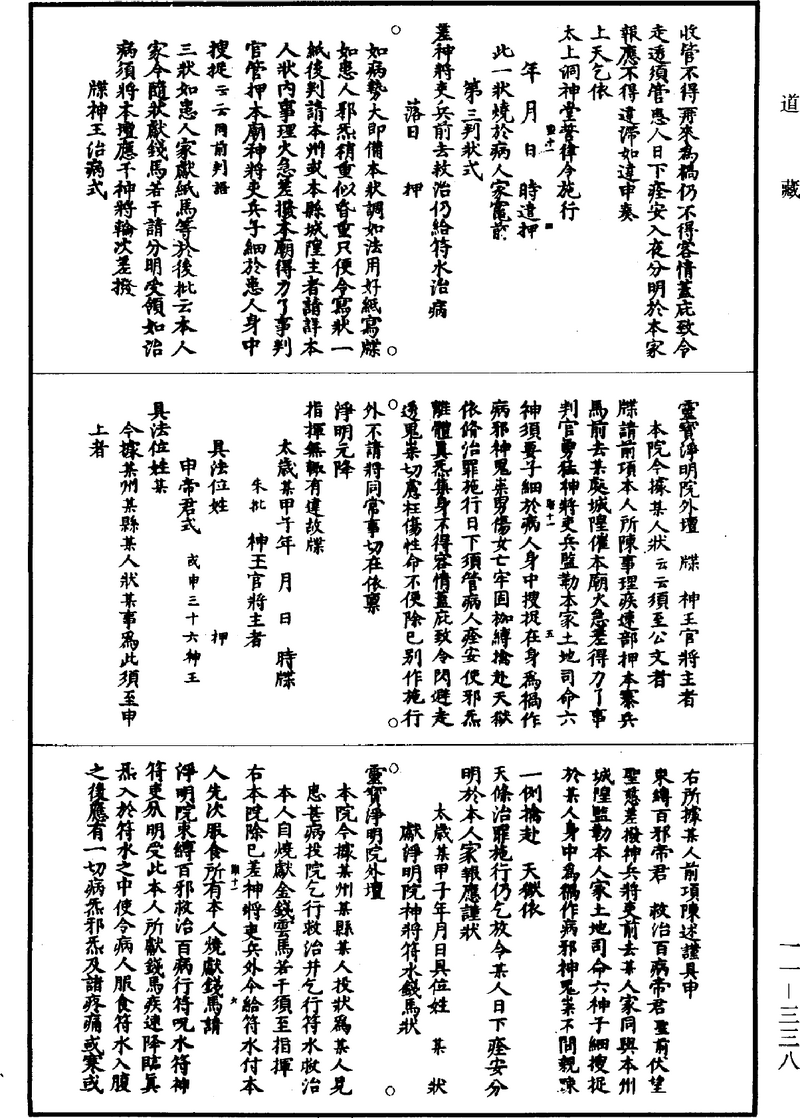 道藏
收管不得再來為禍仍不得容情蓋庇致令
走透須管患人日下痊安入夜分明於本家
報應不得違滯如違申奏
上天乞依
太上洞神堂誓律令施行
年　月　日　時遣押
此一狀燒於病人家竈前
第三判狀式
差神將吏兵前去救治仍給符水治病
落日　押
如病勢大即備本狀調如法用好紙寫牒
如患人邪炁稍重似昏重只便令寫狀一
紙後判請本州或本縣城隍主者請詳本
人狀內事理火急差撥本廟得力了事判
官管押本廟神將吏兵子細於患人身中
搜捉云云同前判語
三狀如患人家獻紙馬等於後批云本人
家令隨狀獻錢馬若干請分明受領如治
病須將本壇應干神將輪次差撥
牒神王治病式
靈寶淨明院外壇　牒　神王官將主者
本院今據某人狀云云須至公文者
牒請前項本人所陳事理疾速部押本寨兵
馬前去某處城隍催本廟火急差得力了事
判官勇猛神將吏兵監勒本家土地司命六
神須要子細於病人身中搜捉在身為禍作
病邪神鬼祟男傷女亡牢固枷縛擒赴天獄
依條治罪施行日下須管病人痊安使邪炁
離體真炁集身不得容情蓋庇致令閃避走
透鬼祟切慮枉傷性命不便除已別作施行
外不請將同常事切在依稟
淨明元降
指揮無輒有違故牒
太歲某甲子年　月　日　時牒
朱批　神王官將主者
具法位姓　押
申帝君式　或申三十六神王
具法位姓某
今據某州某縣某人狀某事為此須至申
上者
右所據某人前項陳述謹具申
束縛百邪帝君　救治百病帝君聖前伏望
聖慈差撥神兵將吏前去某人家同與本州
城隍監勒本人家土地司命六神子細搜捉
於某人身中為禍作病邪神鬼祟不問親疎
一例擒赴　天獄依
天條治罪施行仍乞放令某人日下痊安分
明於本人家報應謹狀
太歲某甲子年月日具位姓　某　狀
獻淨明院神將符水錢馬狀
靈寶淨明院外壇
本院今據某州某縣某人投狀為某人見
患甚病投院乞行救治并乞行符水救治
本人自燒獻金錢雲馬若干須至指揮
右本院除已差神將吏兵外今給符水付本
人先次服食所有本人燒獻錢馬請
淨明院束縛百邪救治百病行符呪水符神
符吏夙明受此本人所獻錢馬疾速降臨真
炁入於符水之中使令病人服食符水入腹
之後應有一切病炁邪炁及諸疼痛或寒或
一一—三三八